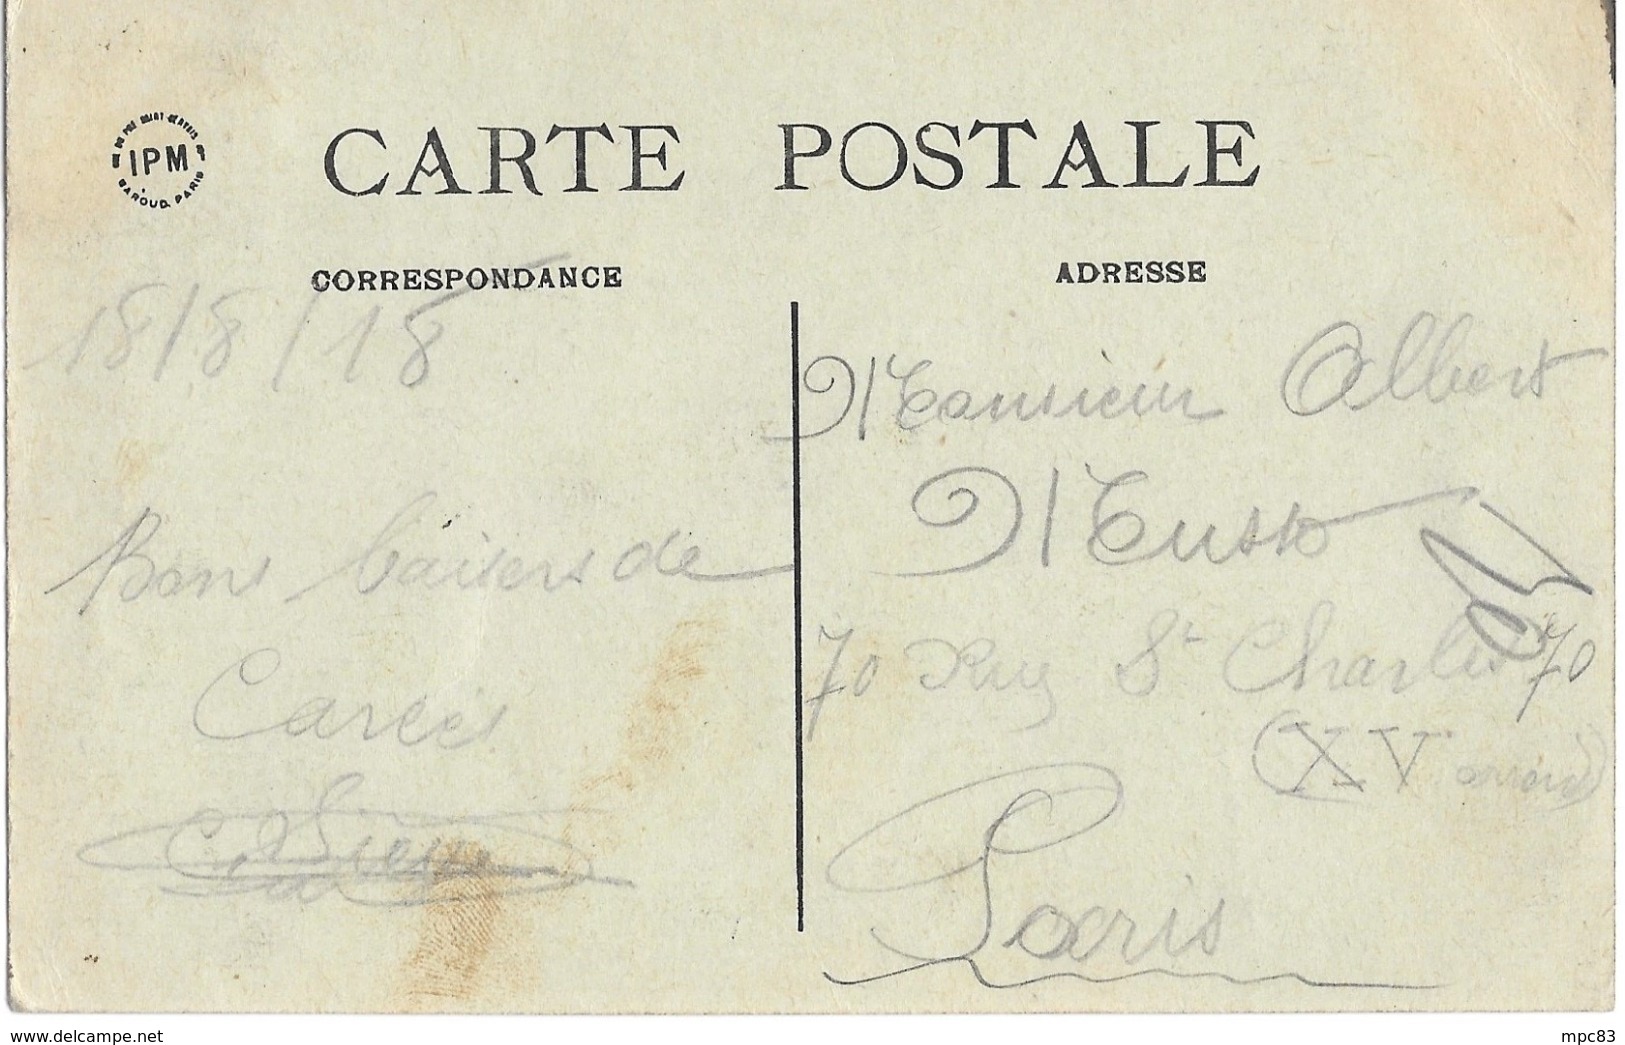 CARTE POSTALE
IPM
BAROUD. PARIS
CORRESPONDANCE
18/8/18
Bons baisers de
Carcès
ADRESSE
Monsieur Albert
Musso
70 Rue St Charles 70
(XV arrond)
Paris
www.delcampe.net
mpc83